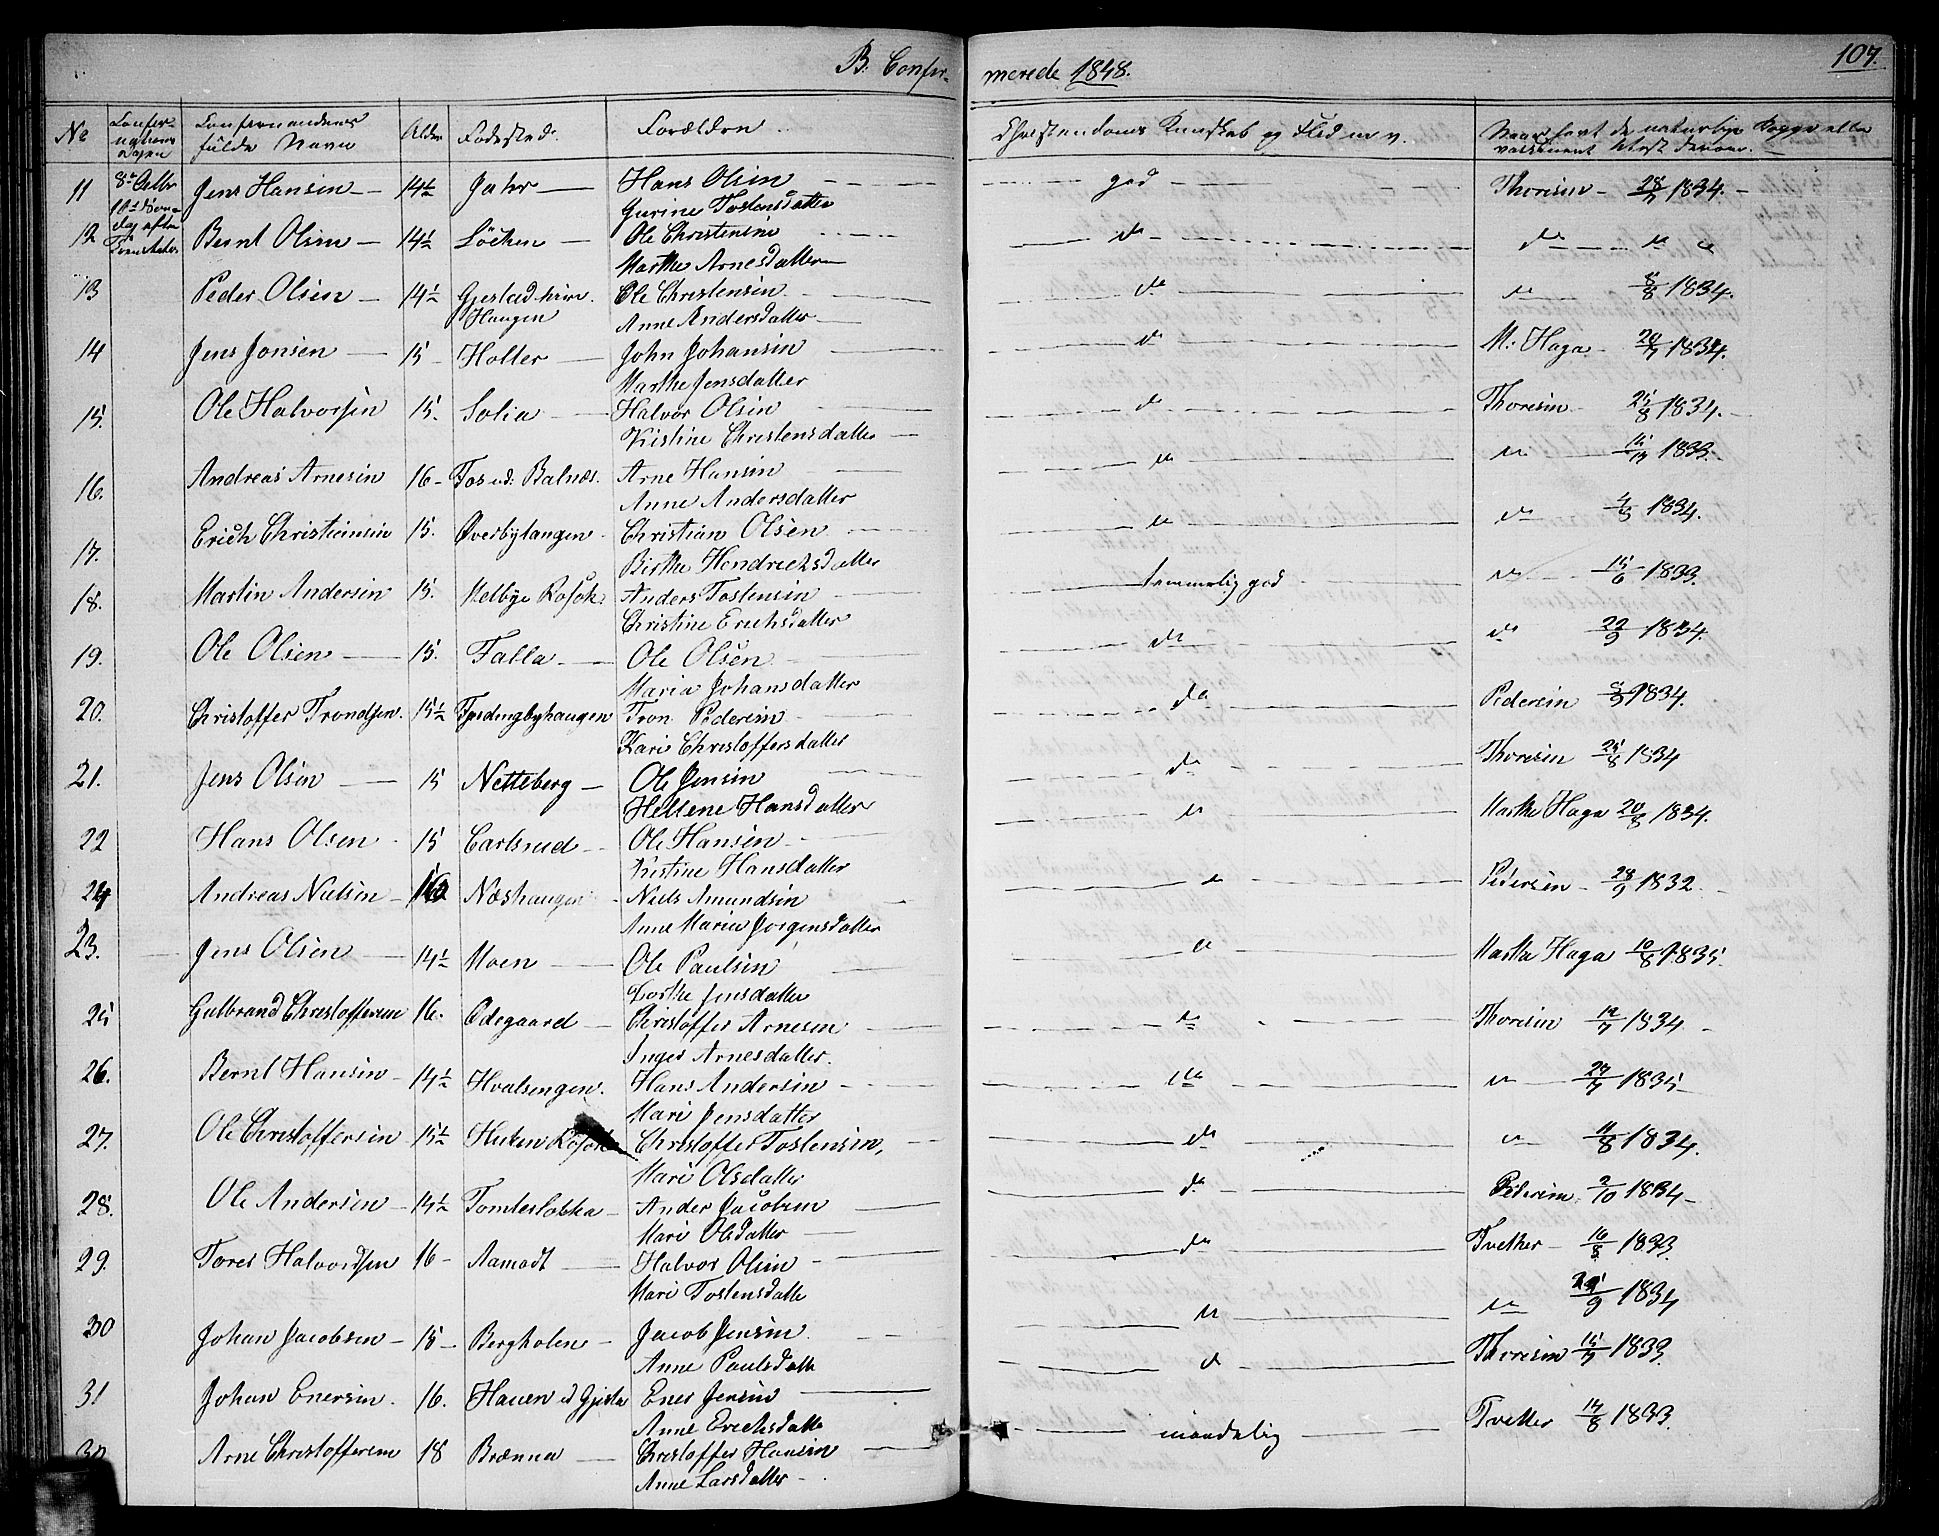 B. Confir-
merede 1848.
107.
No
Confirmandernes fulde Navn
Alder
Fødested.
Forældre
Christendoms Kundskab og Flid m. v.
11 8de Octbr Jens Hansen 14½ Jahr Hans Olsen god Thoresen 28/7 1834.
Gurine Tostensdatter
12 Bernt Olsen 14½ Løchen Ole Christensen do do
Marthe Arnesdatter
13 Peder Olsen 14½ Haugen Ole Christensen do do 8/8 1834.
Anne Andersdatter
14 Jens Jonsen 15 Holter John Johansen do M: Haga 20/7 1834.
Marthe Jensdatter
15. Ole Halvorsen 15. Solia Halvor Olsen do Thoresen 25/8 1834.
Kistine Christensdatter
16. Andreas Arnesen 16 Fos ed. Balnæs Arne Hansen do do 1833
Anne Andersdatter
17. Erich Christiansen 15. Øverbytangen Christian Olsen do do 1834.
Birthe Hendrichsdatter
18. Martin Andersen 15. Melbye Anders Tostensen temmelig god do 15/6 1833.
Christine Erichsdatter
19. Ole Olsen 15. Falla Ole Olsen do do 22/9 1834.
Maria Johansdatter
20. Christoffer Trondsen. 15½ Tron Pedersen do Pedersen 1834.
Kari Christoffersdatter
21. Jens Olsen 15 Netteberg Ole Jensen do Thoresen 25/8 1834
Hellene Hansdatter
22 Hans Olsen 15 Carlsrud Ole Hansen do Marthe Haga 20/8 1834.
Kistine Hansdatter
24 Andreas Nielsen 16 Næshaugen Niels Amundsen do Pedersen 28/9 1832.
Anne Marie Jorgensdatter
23. Jens Olsen 14½ Moen Ole Paulsen do Martha Haga 10/8 1835.
Dorthe Jensdatter
25 Gulbrand Christoffersen 16. Ødegaard Christoffer Arnesen do Thoresen 1834
Inger Arnesdatter.
26. Bernt Hansen 14½ Hvalsengen. Hans Andersen do do 27/7 1835
Mari Jensdatter
27. Ole Christoffersen 15½ Christoffer Tostensen, do do 11/8 1834.
Mari Olsdatter
28. Ole Andersen 14½ Tomtesløkka Ander Jacobsen do Pedersen 2/10 1834
Mari Olsdatter
29. Tores Halvordsen 16 Aamodt Halvor Olsen do Tvether 1833.
Mari Tostensdatte
30 Johan Jacobsen 15 Bergholen Jacob Jensen do do 1834
Anne Paulsdatte
31 Johan Enersen. 16. Hauen ed Ener Jensen do Thoresen 15/7 1833.
Anne Erichsdatte
Arne Christoffersen 18 Brænna Christoffer Hansen maadelig Tvetter 14/8 1833.
Anne Larsdatter